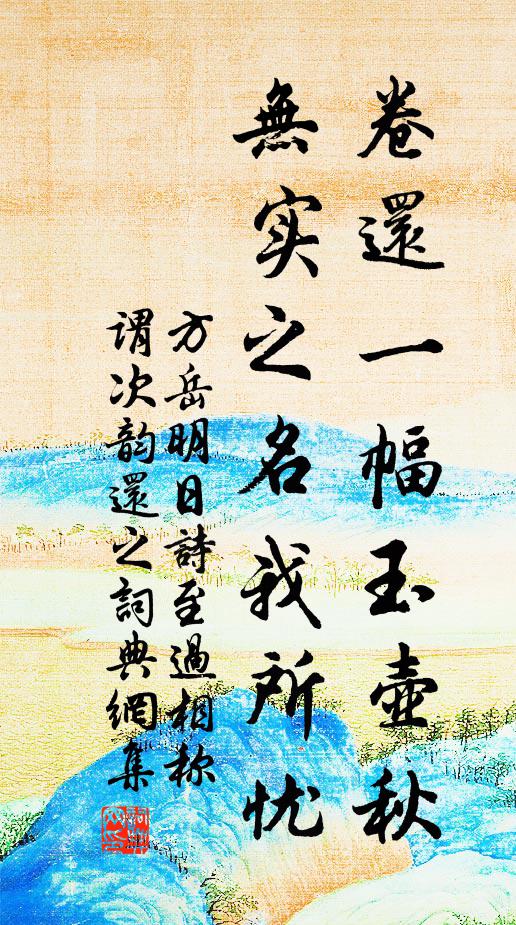 卷還一幅玉壺秋
無实之名我所忧
方岳明日詩至過相称
謂次韵還之詞典網集